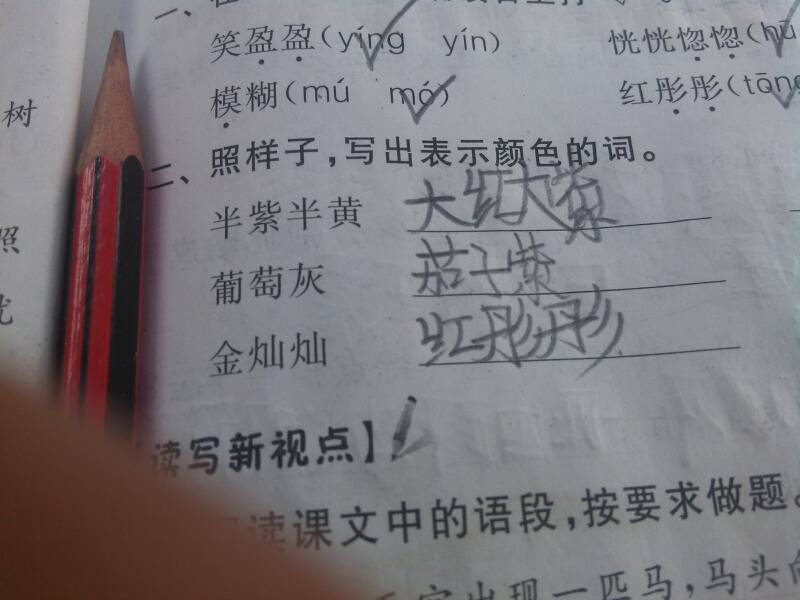 一、
笑盈盈(yíng yín) 恍恍惚惚(hū
树 模糊(mú mó) 红彤彤(tōng
二、照样子,写出表示颜色的词。
半紫半黄 大红大紫
照
葡萄灰 茄子紫
优
金灿灿 红彤彤
读写新视点】
读课文中的语段,按要求做题。
出现一匹马,马头向